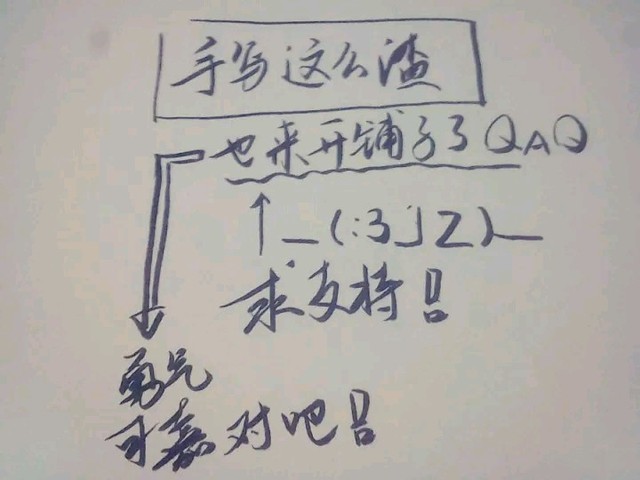 手写这么渣
也来开铺子了QAQ
↑_(:3」Z)_
求支持吕
勇气
可嘉对吧吕